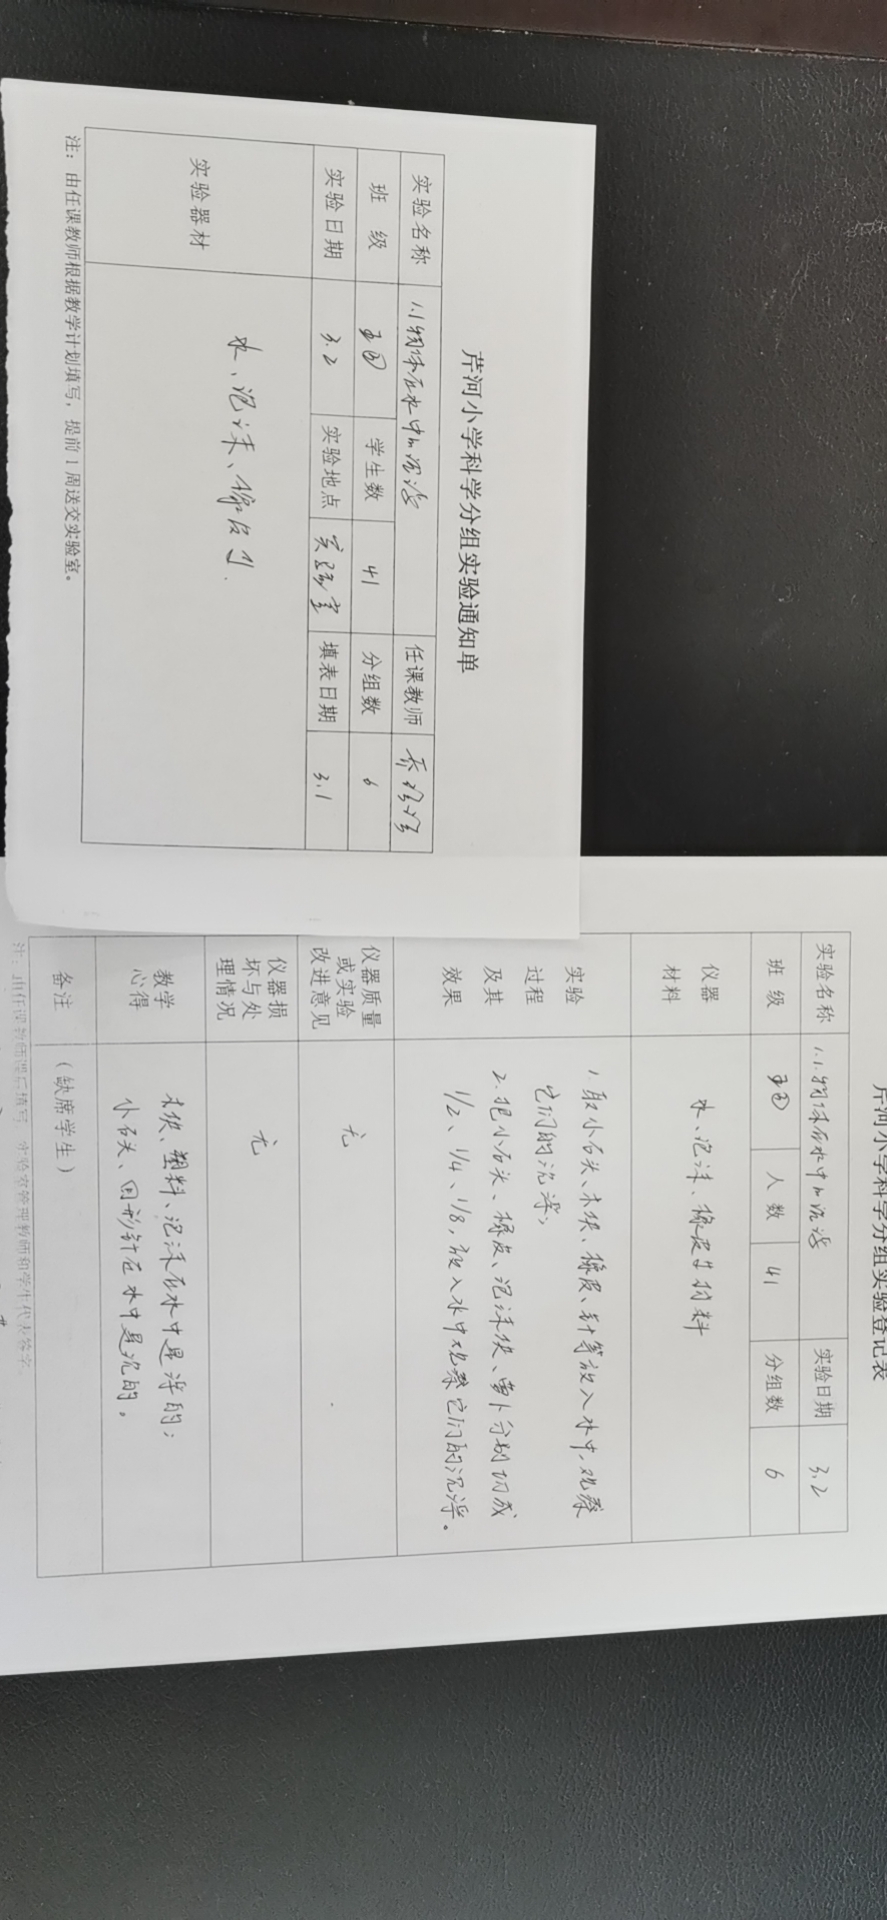 芹河小学科学分组实验通知单
实验名称 1.1物体在水中的沉浮 任课教师
班 级 五④ 学生数 41 分组数 6
实验日期 3.2 实验地点 实验室 填表日期 3.1
实验器材 水、泡沫、橡皮
注：由任课教师根据教学计划填写，提前1周送交实验室。
芹河小学科学分组实验登记表
实验名称 1.1.物体在水中的沉浮 实验日期 3.2
班 级 五④ 人 数 41 分组数 6
仪器材料 水、泡沫、橡皮等材料
实验过程及其效果
1.取小石头、木块、橡皮、针等放入水中,观察
它们的沉浮;
2.把小石头、橡皮、泡沫块、萝卜分别切成
1/2、1/4、1/8,放入水中观察它们的沉浮。
仪器质量或实验改进意见 无
仪器损坏与处理情况 无
教学心得
木块、塑料、泡沫在水中是浮的;
小石头、回形针在水中是沉的。
备注 （缺席学生）
注：由任课教师课后填写，实验室管理教师和学生代表签字。